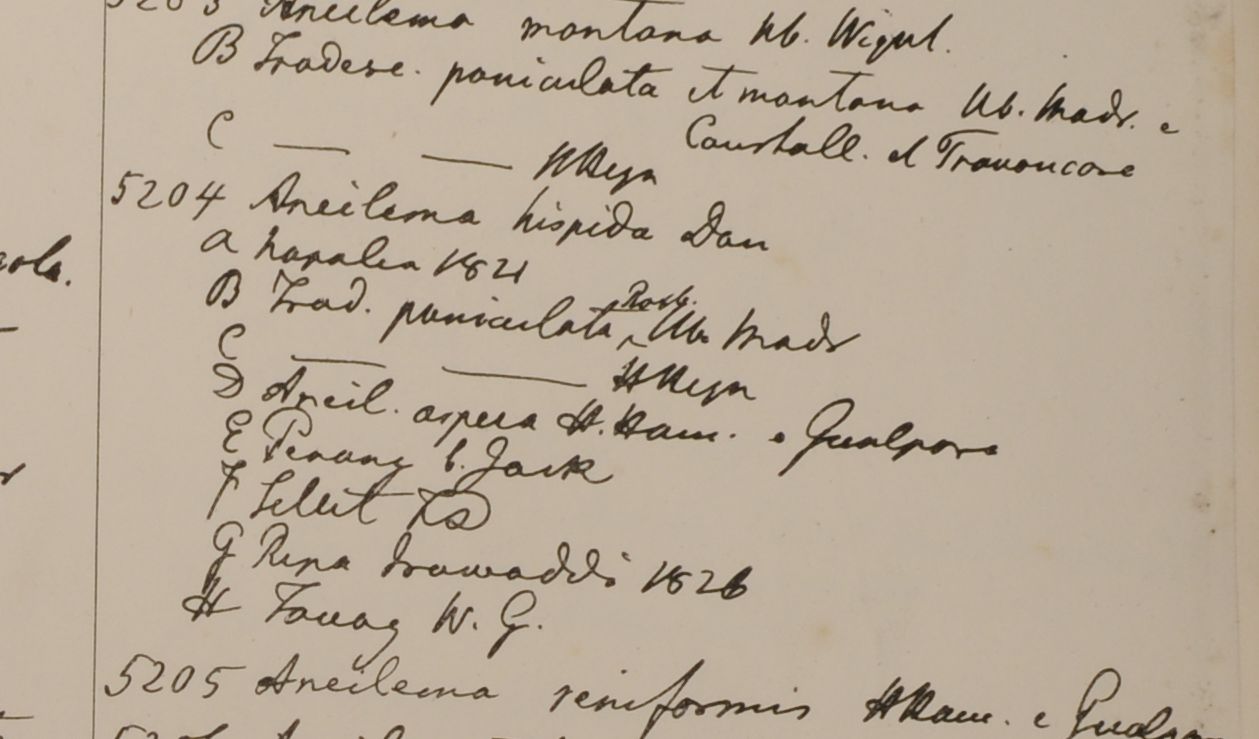 5203 Aneilema montana Hb. Wight.
B Tradesc. paniculata et montana Hb. Madr. e
Courtall. et Travancore
C — — HHeyn
5204 Aneilema hispida Don
a Napalia 1821
B Trad. paniculata Roxb. Hb. Madr
C — — HHeyn
D Aneil. aspera H.Ham. e Gualpara
E Penang G. Jack
F Sillet FD
G Ripa Irawaddi 1826
H Tavoy W. G.
5205 Aneilema reniformis HHam. e Gualpara